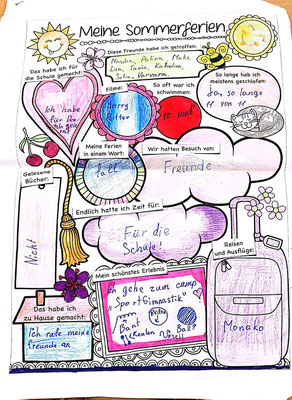 Meine Sommerferien
Diese Freunde habe ich getroffen:
Das habe ich für
die Schule gemacht:
Lisa, Tanja,
Sofia, Varvara
So lange hab ich
meistens geschlafen:
So, so lange
11 von 11
Filme:
Harry
Potter
So oft war ich
schwimmen:
10 mal
Ich habe
für
Meine Ferien
in einem Wort:
toll
Wir hatten Besuch von:
Freunde
Gelesene
Bücher:
Nicht
Endlich hatte ich Zeit für:
Für die
Schule!
Reisen
und Ausflüge:
Monako
Mein schönstes Erlebnis
Ich gehe zum camp
"Sportgimnastik"
Band
Ball
Das habe ich
zu Hause gemacht:
Ich rufe meine
freunde an